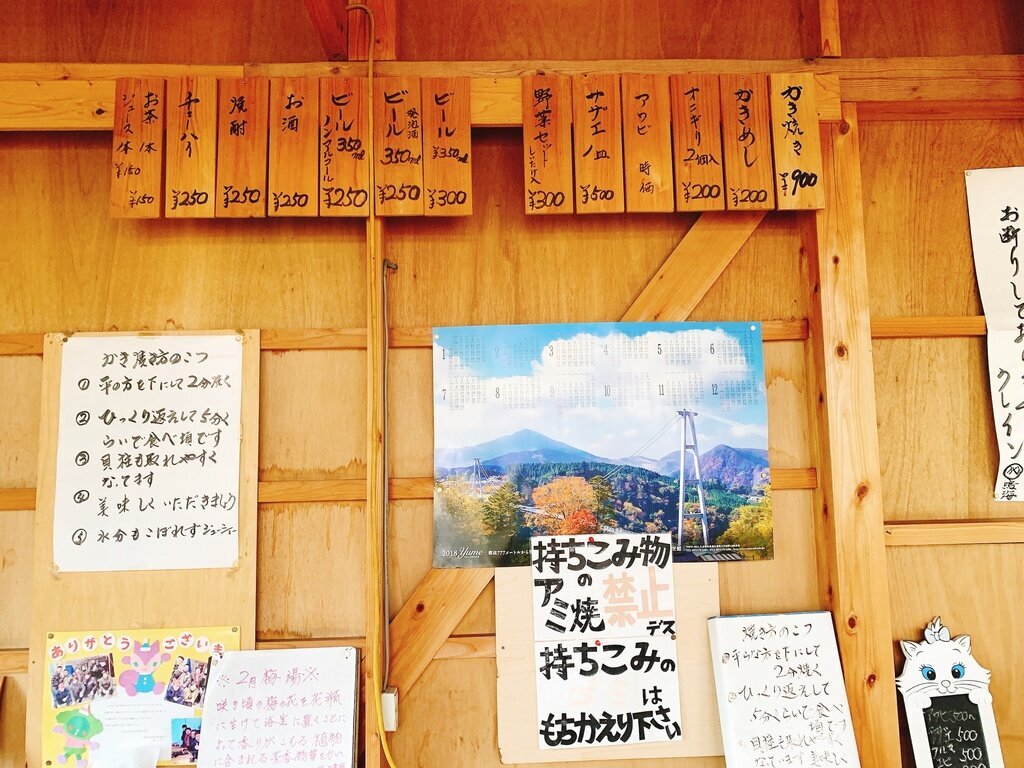 お茶 1本
ジュース 1本
¥150
¥150
チューハイ
¥250
焼酎
¥250
お酒
¥250
ビール 350ml
ノンアルコール
¥250
ビール 発泡酒
350ml
¥250
ビール
¥350ml
¥300
野菜セット
しいたけ入
¥300
サザエ 一皿
¥500
アワビ
時価
オニギリ
2個入
¥200
かきめし
¥200
かき焼き
¥900
お断りして
クレイン
かき焼き方のこつ
① 平の方を下にして2分焼く
② ひっくり返えして5分く
らいで食べ頃です
③ 貝柱も取れやすく
なってます
④ 美味しくいただきましょう
⑤ 水分もこぼれずジューシー
1 2 3 4 5 6
7 8 9 10 11 12
2018 Yume
持ちこみ物
の
アミ焼
禁止
デス。
持ちこみの
は
もちかえり下さい
ありがとうございま
※2月 梅湯※
咲き頃の梅の花を花瓶
に生けて浴室に置くことに
よて香りがこもる 植物
に含まれる芳香物質とか
焼き方のこつ
①平らな方を下にして
2分焼く
②ひっくり返えして
5分ぐらいで食べ
頃です
③貝柱も取れやすく
なっています 美味し
500
500
500